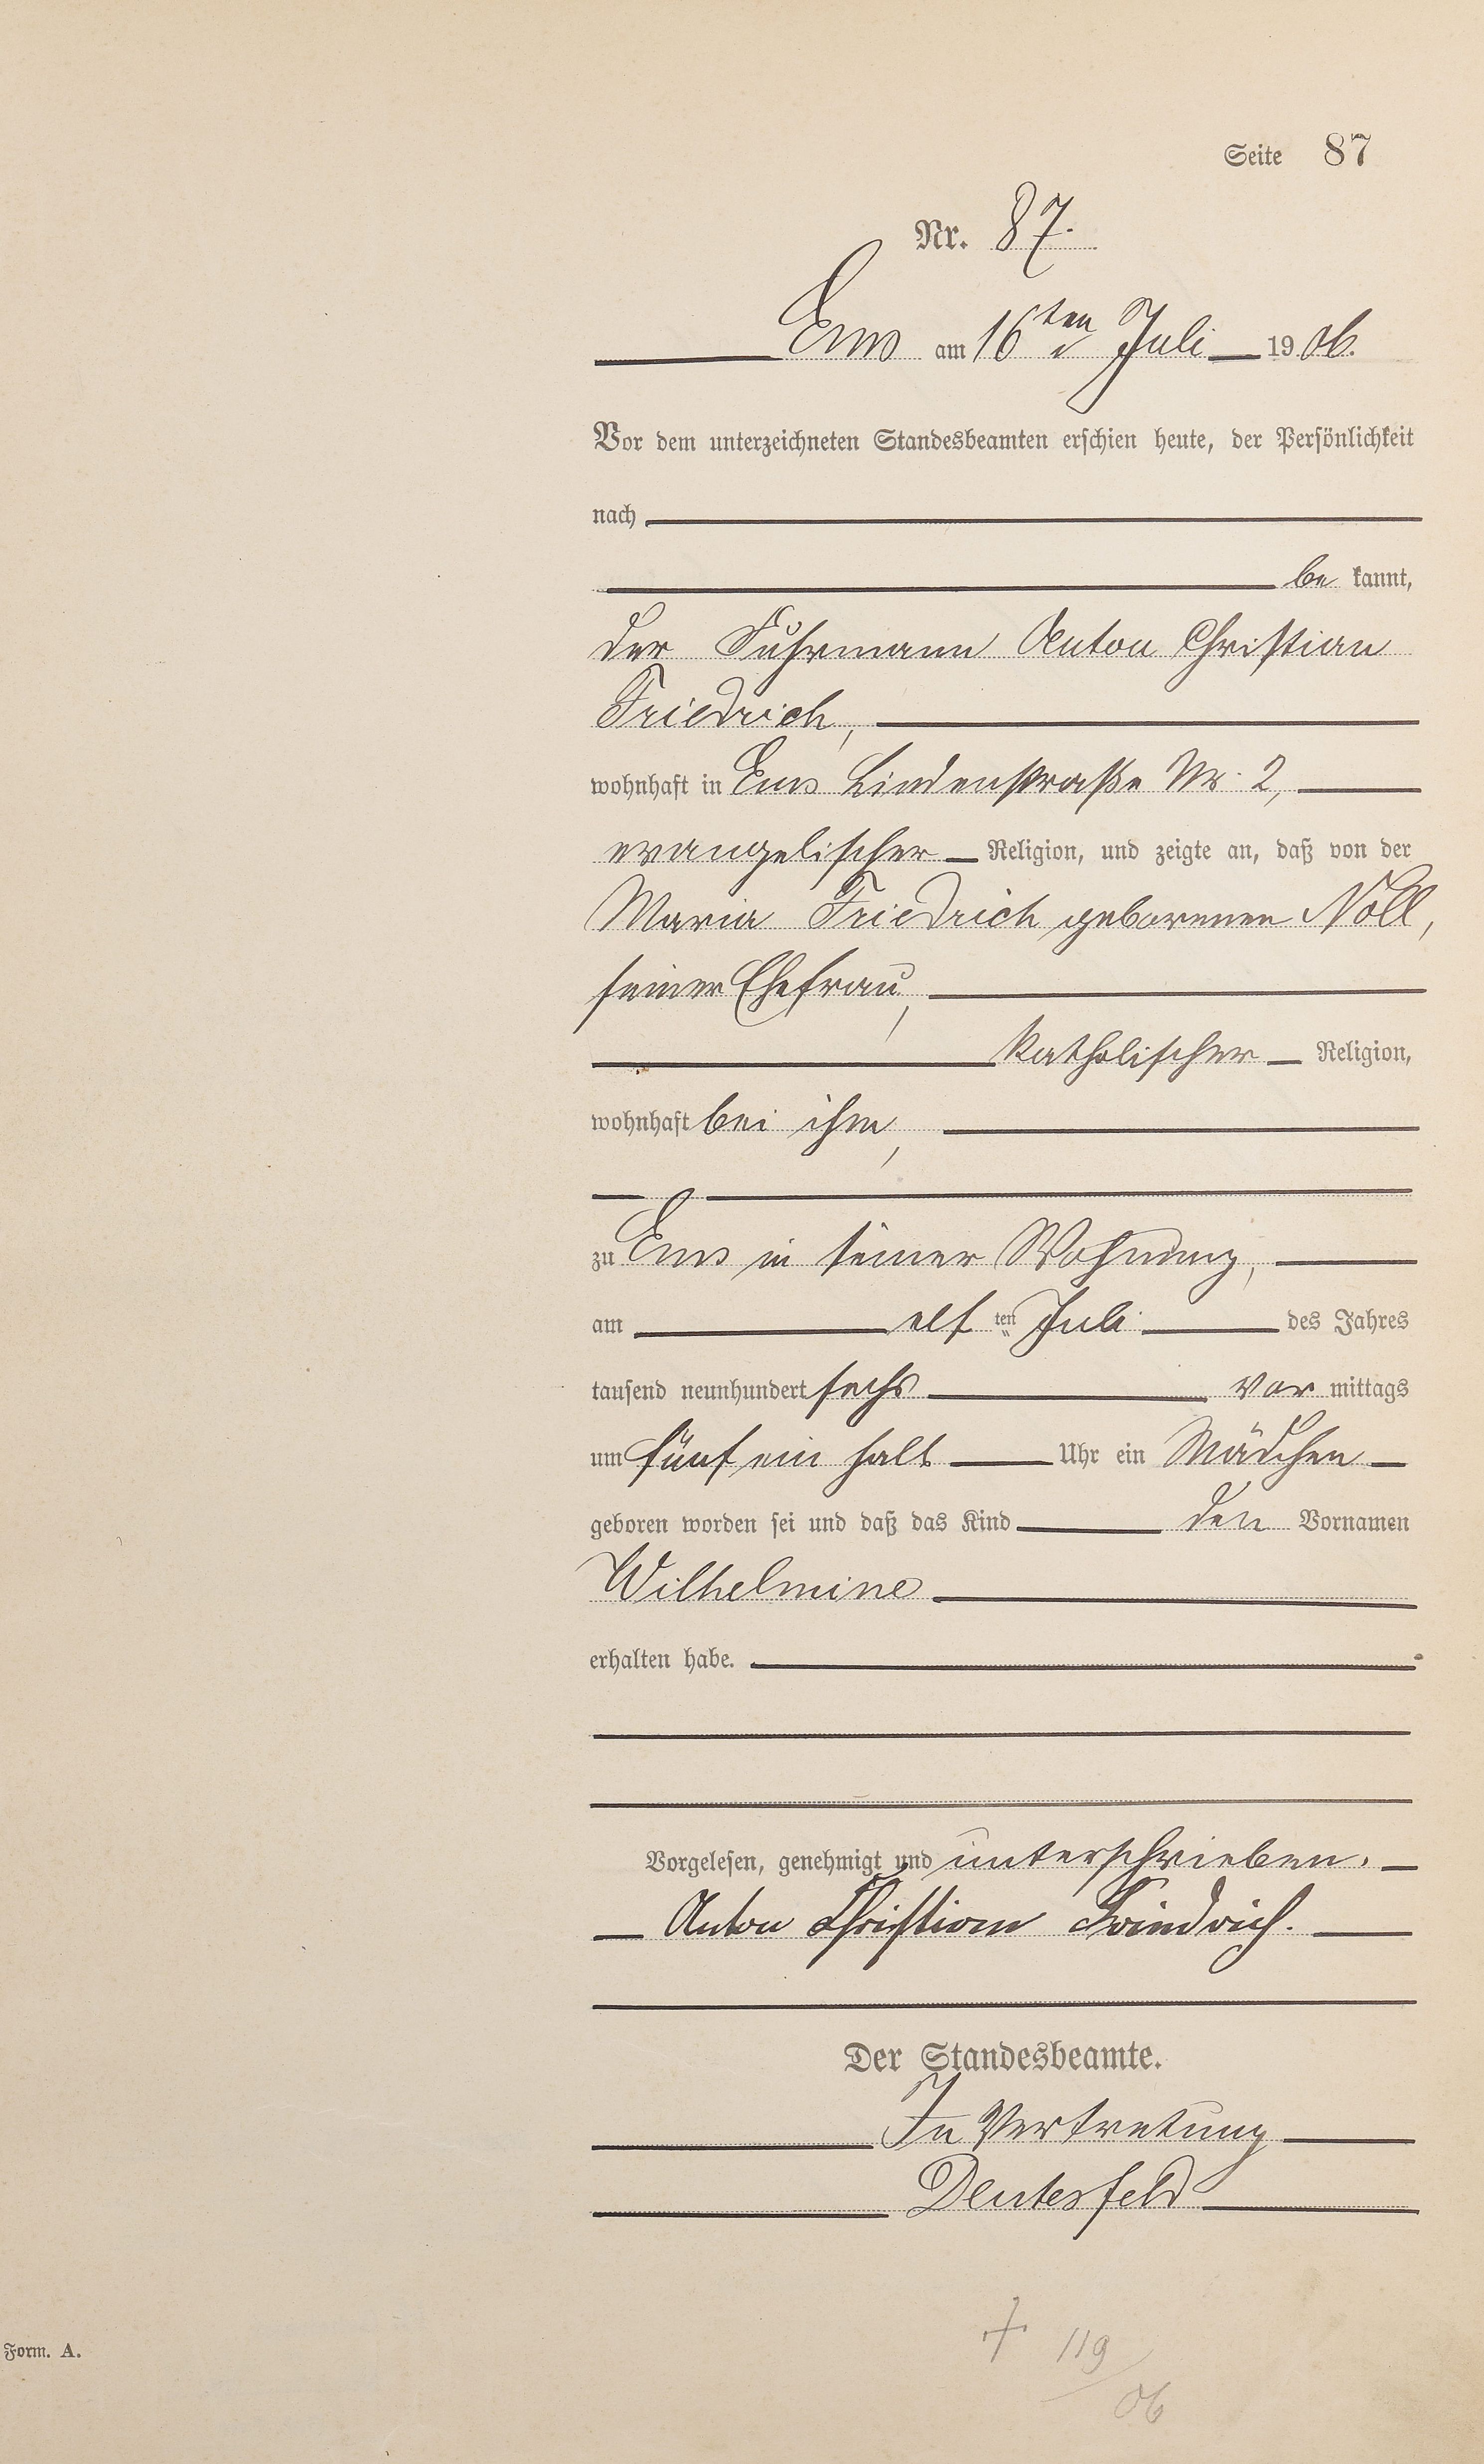 Seite 87
Nr. 87.
Ems am 16ten Juli 1906.
Vor dem unterzeichneten Standesbeamten erschien heute, der Persönlichkeit
nach
be kannt,
der Fuhrmann Anton Christian
Friedrich,
wohnhaft in Ems Lindenstraße Nr. 2,
evangelischer Religion, und zeigte an, daß von der
Maria Friedrich geborenen Noll,
seiner Ehefrau,
katholischer Religion,
wohnhaft bei ihm,
zu Ems in seiner Wohnung,
am elf ten Juli des Jahres
tausend neunhundert sechs vor mittags
um fünf ein halb Uhr ein Mädchen
geboren worden sei und daß das Kind den Vornamen
Wilhelmine
erhalten habe.
Vorgelesen, genehmigt und unterschrieben.
Anton Christian Friedrich.
Der Standesbeamte.
In Vertretung
Deutesfeld
Form. A.
† 119/06